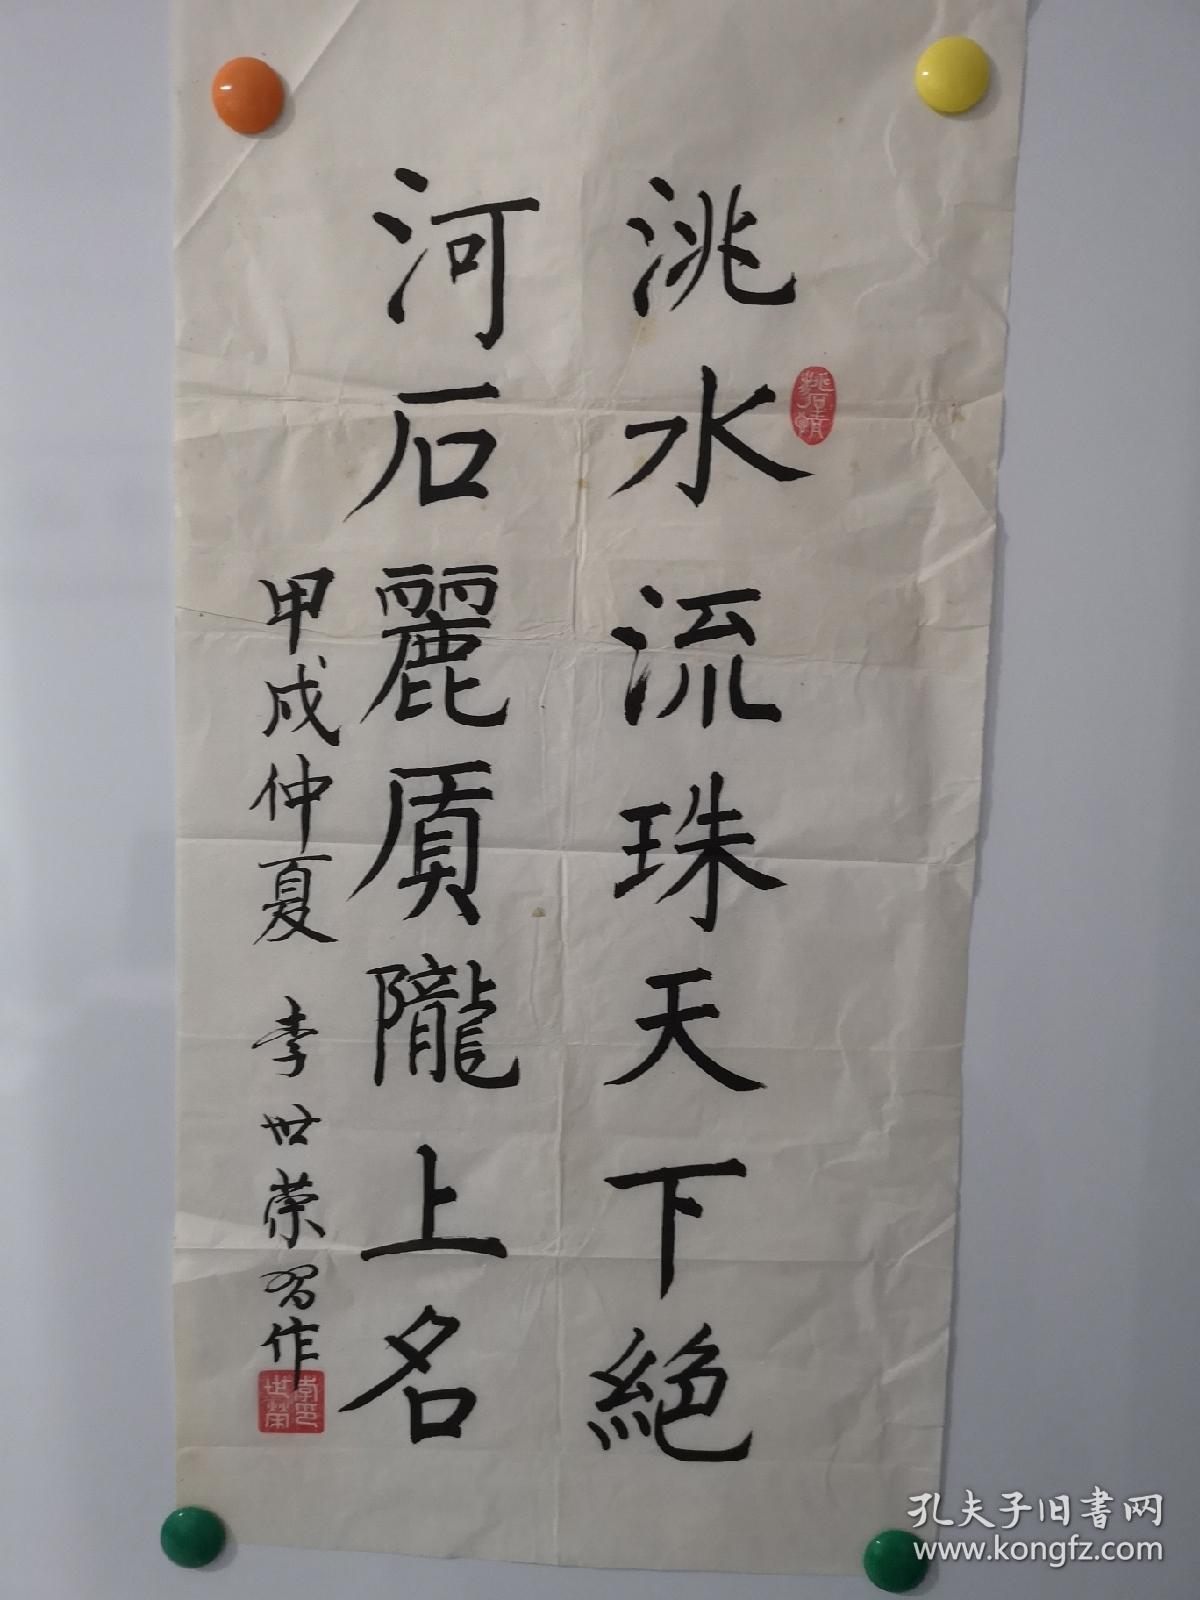 洮水流珠天下絕
河石麗质隴上名
甲戌仲夏 李世荣习作
李世荣印
孔夫子旧书网
www.kongfz.com